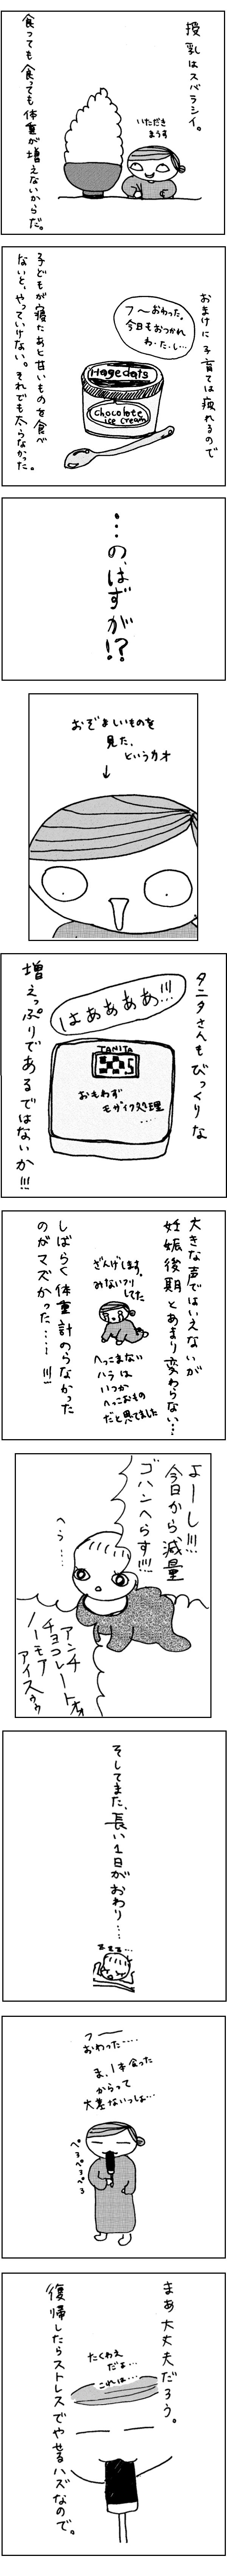 授乳はスバラシイ。
いただき
まうす
食っても食っても体重が増えないからだ。
おまけに子育ては疲れるので
フ〜おわった。
今日もおつかれ
わ・た・し…
Hagedats
chocolate
ice cream
子どもが寝たあと甘いものを食べ
ないと、やっていけない。それでも太らなかった。
…の、はずが!?
おぞましいものを
見た、
というカオ
↓
タニタさんもびっくりな
はあああぁ!!!
TANITA
5
おもわず
モザイク処理
....
増えっぷりであるではないか!!!
大きな声ではいえないが
妊娠後期とあまり変わらない…
ざんげします。
みないフリ
してた
へっこまない
ハラは
いつか
へっこむもの
だと思てました
しばらく体重計のらなかった
のがマズかった……!!!
よーし!!!
今日から減量
ゴハンへらす!!!
へう……
アンチ
チョコレートォォ
ノーモア
アイスゥゥ
そしてまた、長い1日がおわり…
zzz…
フ――
おわった……
ま、1本食った
からって
大差ないっしょ…
ペろペろペろ
まあ大丈夫だろう。
たくわえ
だよ…
これは…
復帰したらストレスでやせるハズなので。